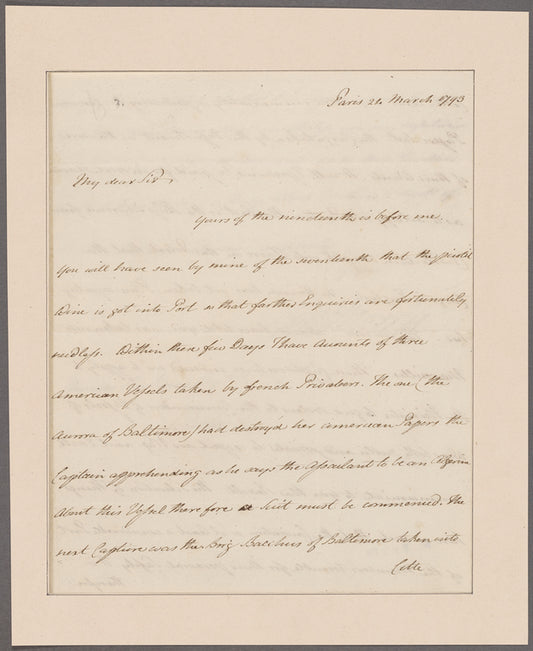 Paris 21. March 1793
My dear Sir,
Yours of the nineteenth is before me.
You will have seen by mine of the seventeenth that the
Wine is got into Port so that farther Enquiries are fortunately
needless. Within these few Days I have Accounts of three
American Vessels taken by french Privateers. The one (the
Aurora of Baltimore) had destroyd her american Papers the
Captain apprehending as he says the Assailant to be an Algerine
About this Vessel therefore a Suit must be commenced. The
next Capture was the Brig Bacchus of Baltimore taken into
Cette